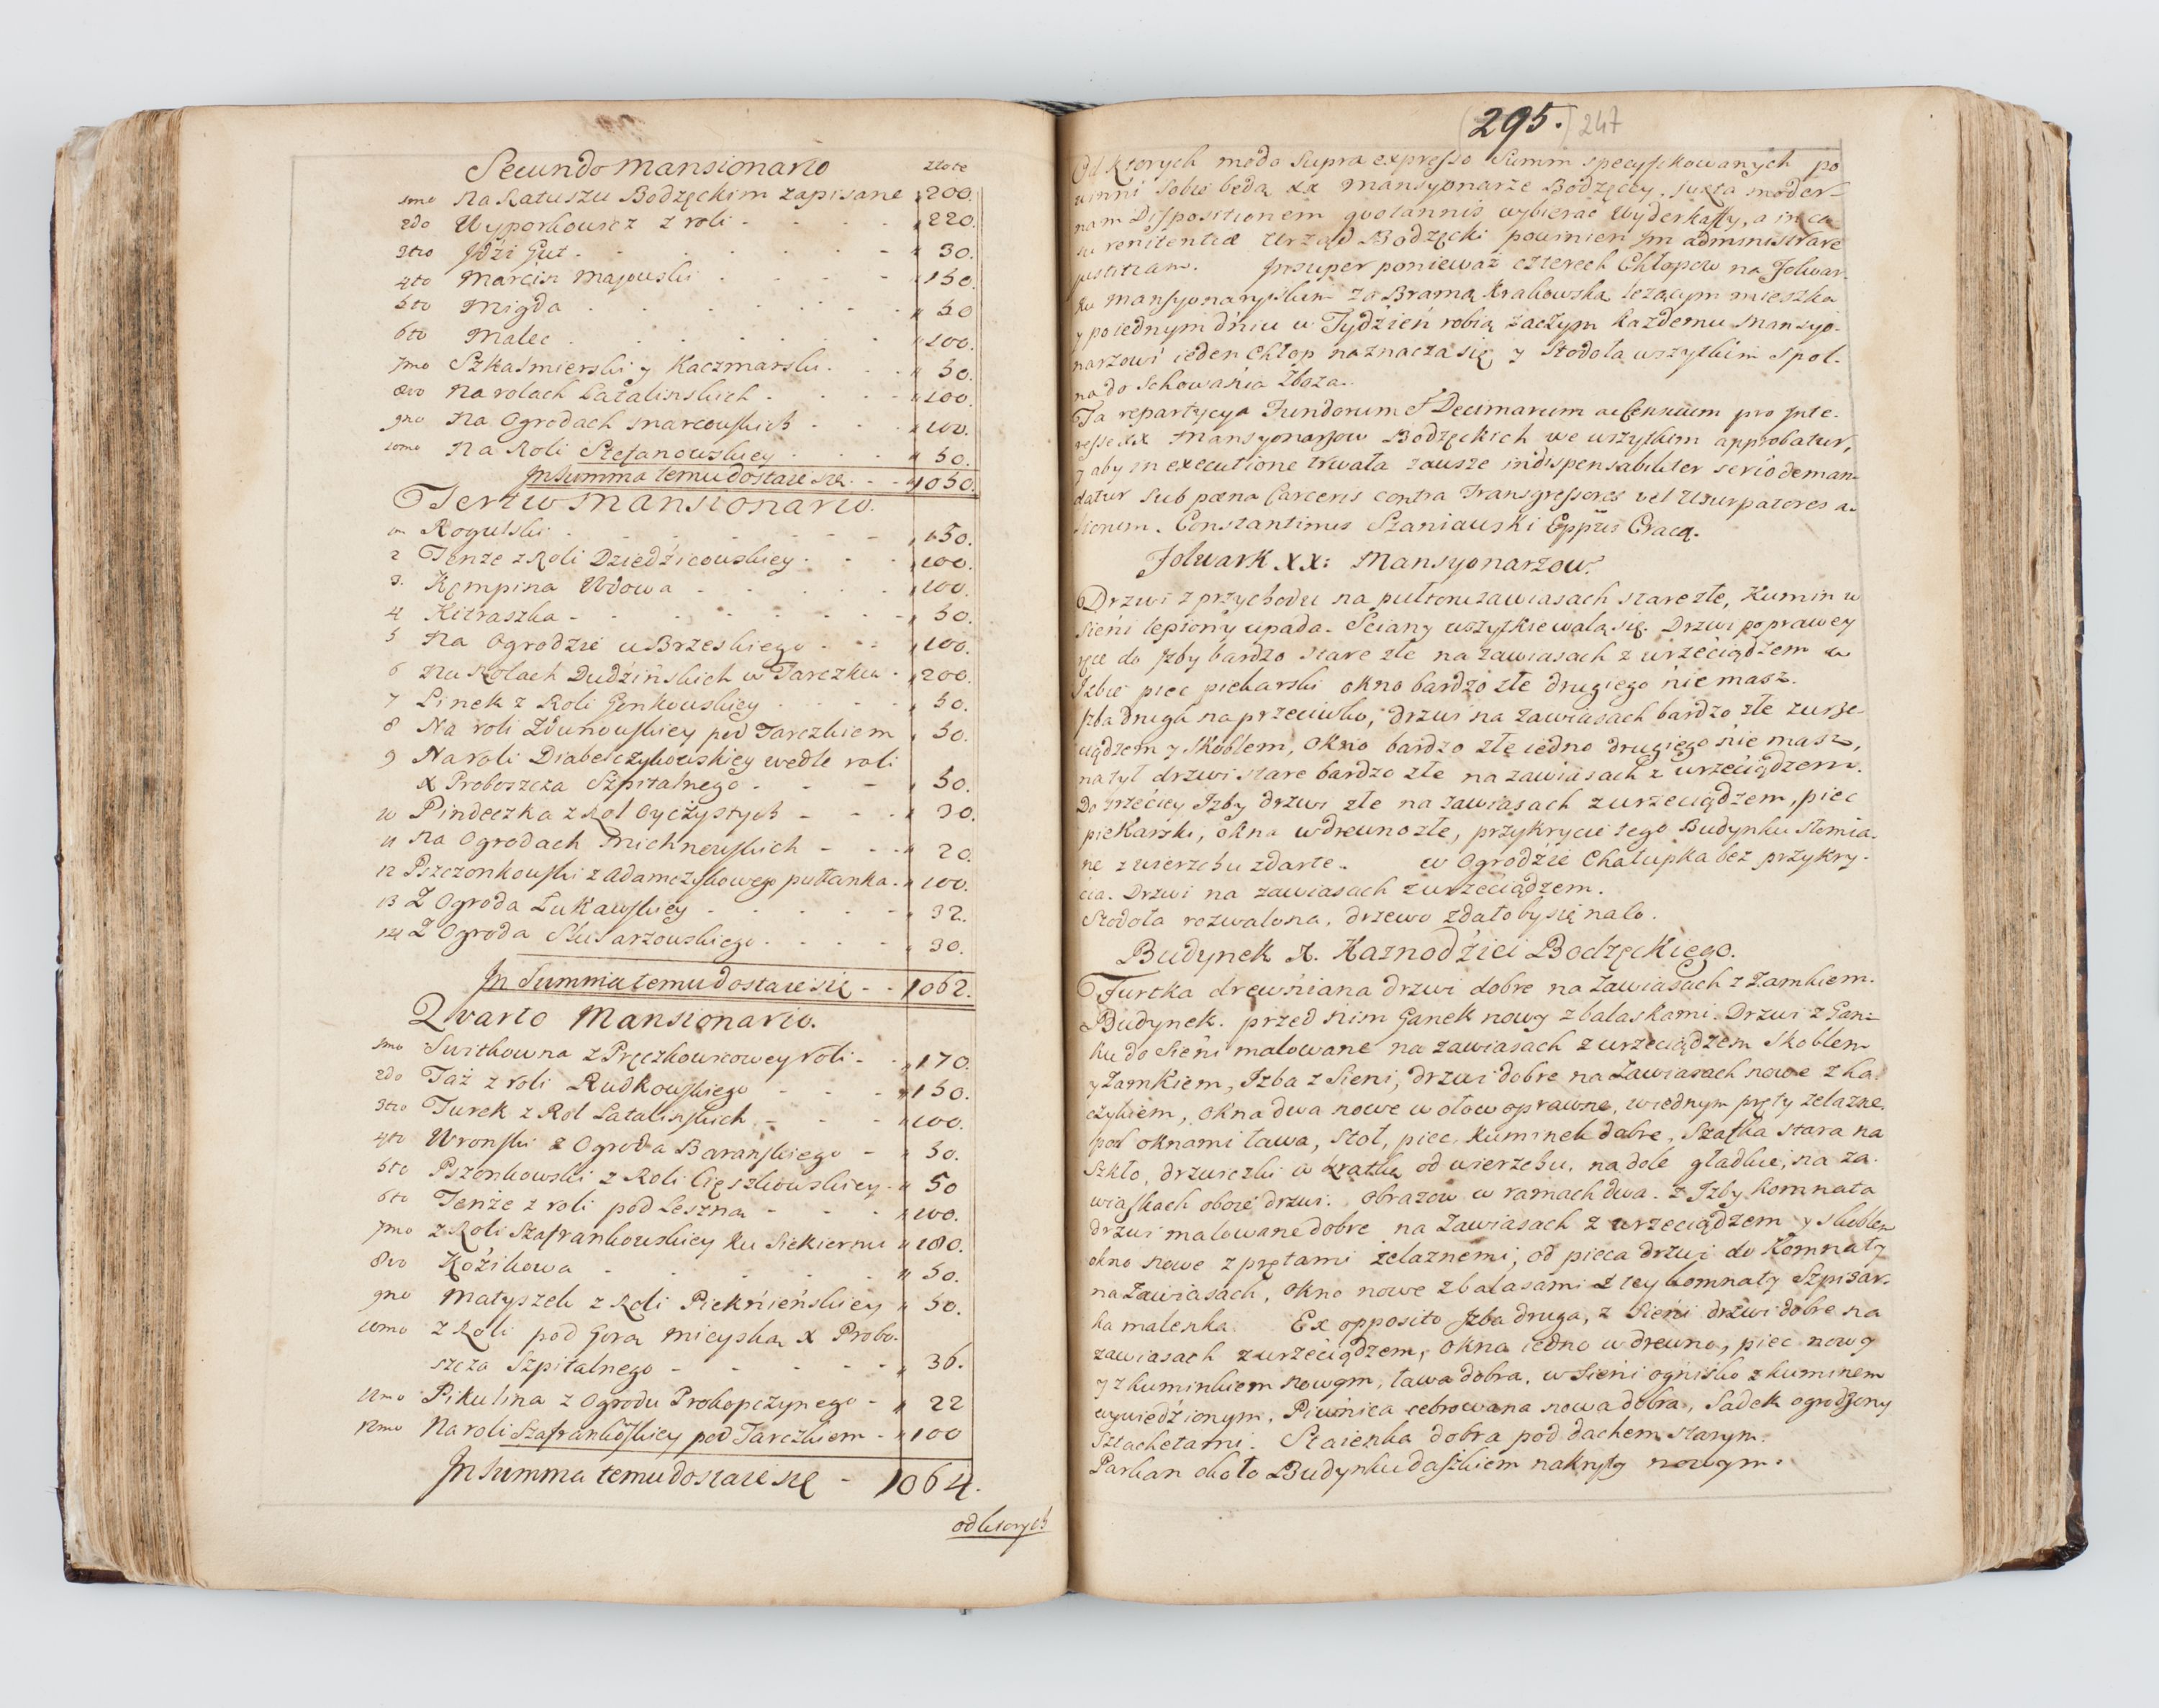 Secundo Mansionario złote
1mo Na Ratuszu Bodzęckim zapisane 200.
2do Wyporkowicz z roli - - - 220.
3tio Jdzi Gut - - - 30.
4to Marcin Majowski - - - 150.
5to Migda - - - 50
6to Malec - - - 100.
7mo Szkaśmierski y Kaczmarski - - - 50.
8vo Na rolach Latalinskich - - - 100.
9no Na Ogrodach Marcowskich - - - 100.
10mo Na Roli Stefanowskiey - - - 50.
In Summa temu dostaie się - - 1050.
Tertio Mansionario.
Rogulski - - - 150.
2 Tenże z Roli Dziedzicowskiey - - - 100.
3. Kempina Wdowa - - - 100.
4 Kitraszka - - - 50.
5 Na Ogrodzie u Brzeskiego - - - 100.
6 Na Rolach Dudzińskich w Tarczku - 200.
7 Linek z Roli Genkowskiey - - - 50.
8 Na roli Zdunowskiey pod Tarczkiem 50.
9 Na roli Diabelczykowskiey wedle roli
X Proboszcza Szpitalnego - - - 50.
10 Pindeczka z Rol Oyczystych - - - 30.
11 Na Ogrodach Michnowskich - - - 20.
12 Pszczonkowski z Adamczykowego pułłanka - 100.
13 Z Ogroda Łukawskiey - - - 32.
14 Z Ogroda Slusarzowskiego - - - 30.
In Summa temu dostaie się - - 1062.
Quarto Mansionario.
1mo Switkowna z Pręczkowicowey roli - 170.
2do Taż z roli Rudkowskiego - - - 150.
3tio Turek z Rol Latalinskich - - - 100.
4to Wronski z Ogroda Baranskiego - 50.
5to Pszonkowski z Roli Cięszkowskiey - 50
6to Tenże z roli pod Leszna - - - 100.
7mo z Roli Szafrankowskiey ku Siekiernu 180.
8vo Koźikowa - - - 50.
9no Matyszek z Roli Pieknieńskiey 50.
10mo z Roli pod Gora Mieyska X Probo-
szcza Szpitalnego - - - 36.
11mo Pikulina z Ogrodu Prokopczynego - 22
12mo Na roli Szafrankoskiey pod Tarczkiem - 100
In Summa temu dostaie się - 1064.
od ktorych
295. 247
Od ktorych modo supra expresso Summ specyfikowanych po
winni sobie będą XX Mansyonarze Bodzęccy, juxta moder-
nam Dispositionem quotannis wybierać Wyderkaffy, a in ca
su renitentiæ Urząd Bodzęcki powinien Jm administrare
justitiam. Insuper ponieważ czterech Chłopow na Folwar-
ku Mansyonaryskim za Bramą Krakowską leżącym mieszka
y po iednym dniu w Tydzień robią zaczym każdemu Mansyo-
narzowi ieden Chłop naznacza się y Stodoła wszytkim spol-
na do Schowania Zboza.
Ta repartycya Fundorum et Decimarum ac Censuum pro Inte-
resse XX Mansyonarzow Bodzęckich we wszytkim approbatur,
y aby in executione trwała zawsze indispensabiliter serio deman-
datur sub pæna Carceris contra Transgressores vel Usurpatores a-
lienum. Constantinus Szaniawski Eppus Cracq.
Folwark XX: Mansyonarzow.
Drzwi z przychodu na pułtoru zawiasach stare złe, Kumin w
Sieni lepiony upada. Sciany wszytkie walą się. Drzwi po prawey
ręce do Izby bardzo stare złe na zawiasach z wrzeciądzem w
Izbie piec piekarski okno bardzo złe drugiego nie masz.
Izba druga naprzeciwko, drzwi na zawiasach bardzo złe z wrze-
ciądzem y skoblem, okno bardzo złe iedno drugiego nie masz,
na tył drzwi stare bardzo złe na zawiasach z wrzeciądzem.
Do trzeciey Izby drzwi złe na zawiasach z wrzeciądzem, piec
piekarski, okna w drewno złe, przykrycie tego Budynku słomia-
ne z wierzchu zdarte. w Ogrodzie Chałupka bez przykry-
cia. Drzwi na zawiasach z wrzeciądzem.
Stodoła rozwalona, drzewo zdałoby się nalo.
Budynek X. Kaznodziei Bodzęckiego.
Furtka drewniana drzwi dobre na zawiasach z Zamkiem.
Budynek. przed nim Ganek nowy z balaskami. Drzwi z Gan-
ku do Sieni malowane na zawiasach z wrzeciądzem Skoblem
y Zamkiem, Izba z Sieni, drzwi dobre na Zawiasach nowe z ha-
czykiem, okna dwa nowe w ołow oprawne, w iednym pręty zelazne.
pod oknami ława, Stoł, piec, kuminek dobre, Szafka stara na
Szkło, drzwiczki w kratkę od wierzchu, na dole gładkie, na za-
wiaskach oboie drzwi. obrazow w ramach dwa. z Izby Komnata
drzwi malowane dobre na Zawiasach z wrzeciądzem y skoblem
okno nowe z prętami zelaznemi, od pieca drzwi do Komnaty
na Zawiasach, okno nowe z balasami z tey komnaty Szpizar-
ka malenka. Ex opposito Izba druga, z Sieni drzwi dobre na
zawiasach z wrzeciądzem, okna iedno w drewno, piec nowy
y z kuminkiem nowym, ława dobra, w Sieni ognisko z kuminem
wywiedzionym, Piwnica cebrowana nowa dobra, Sadek ogrodzony
Sztachetami. Staienka dobra pod dachem starym.
Parkan około Budynku daszkiem nakryty nowym.